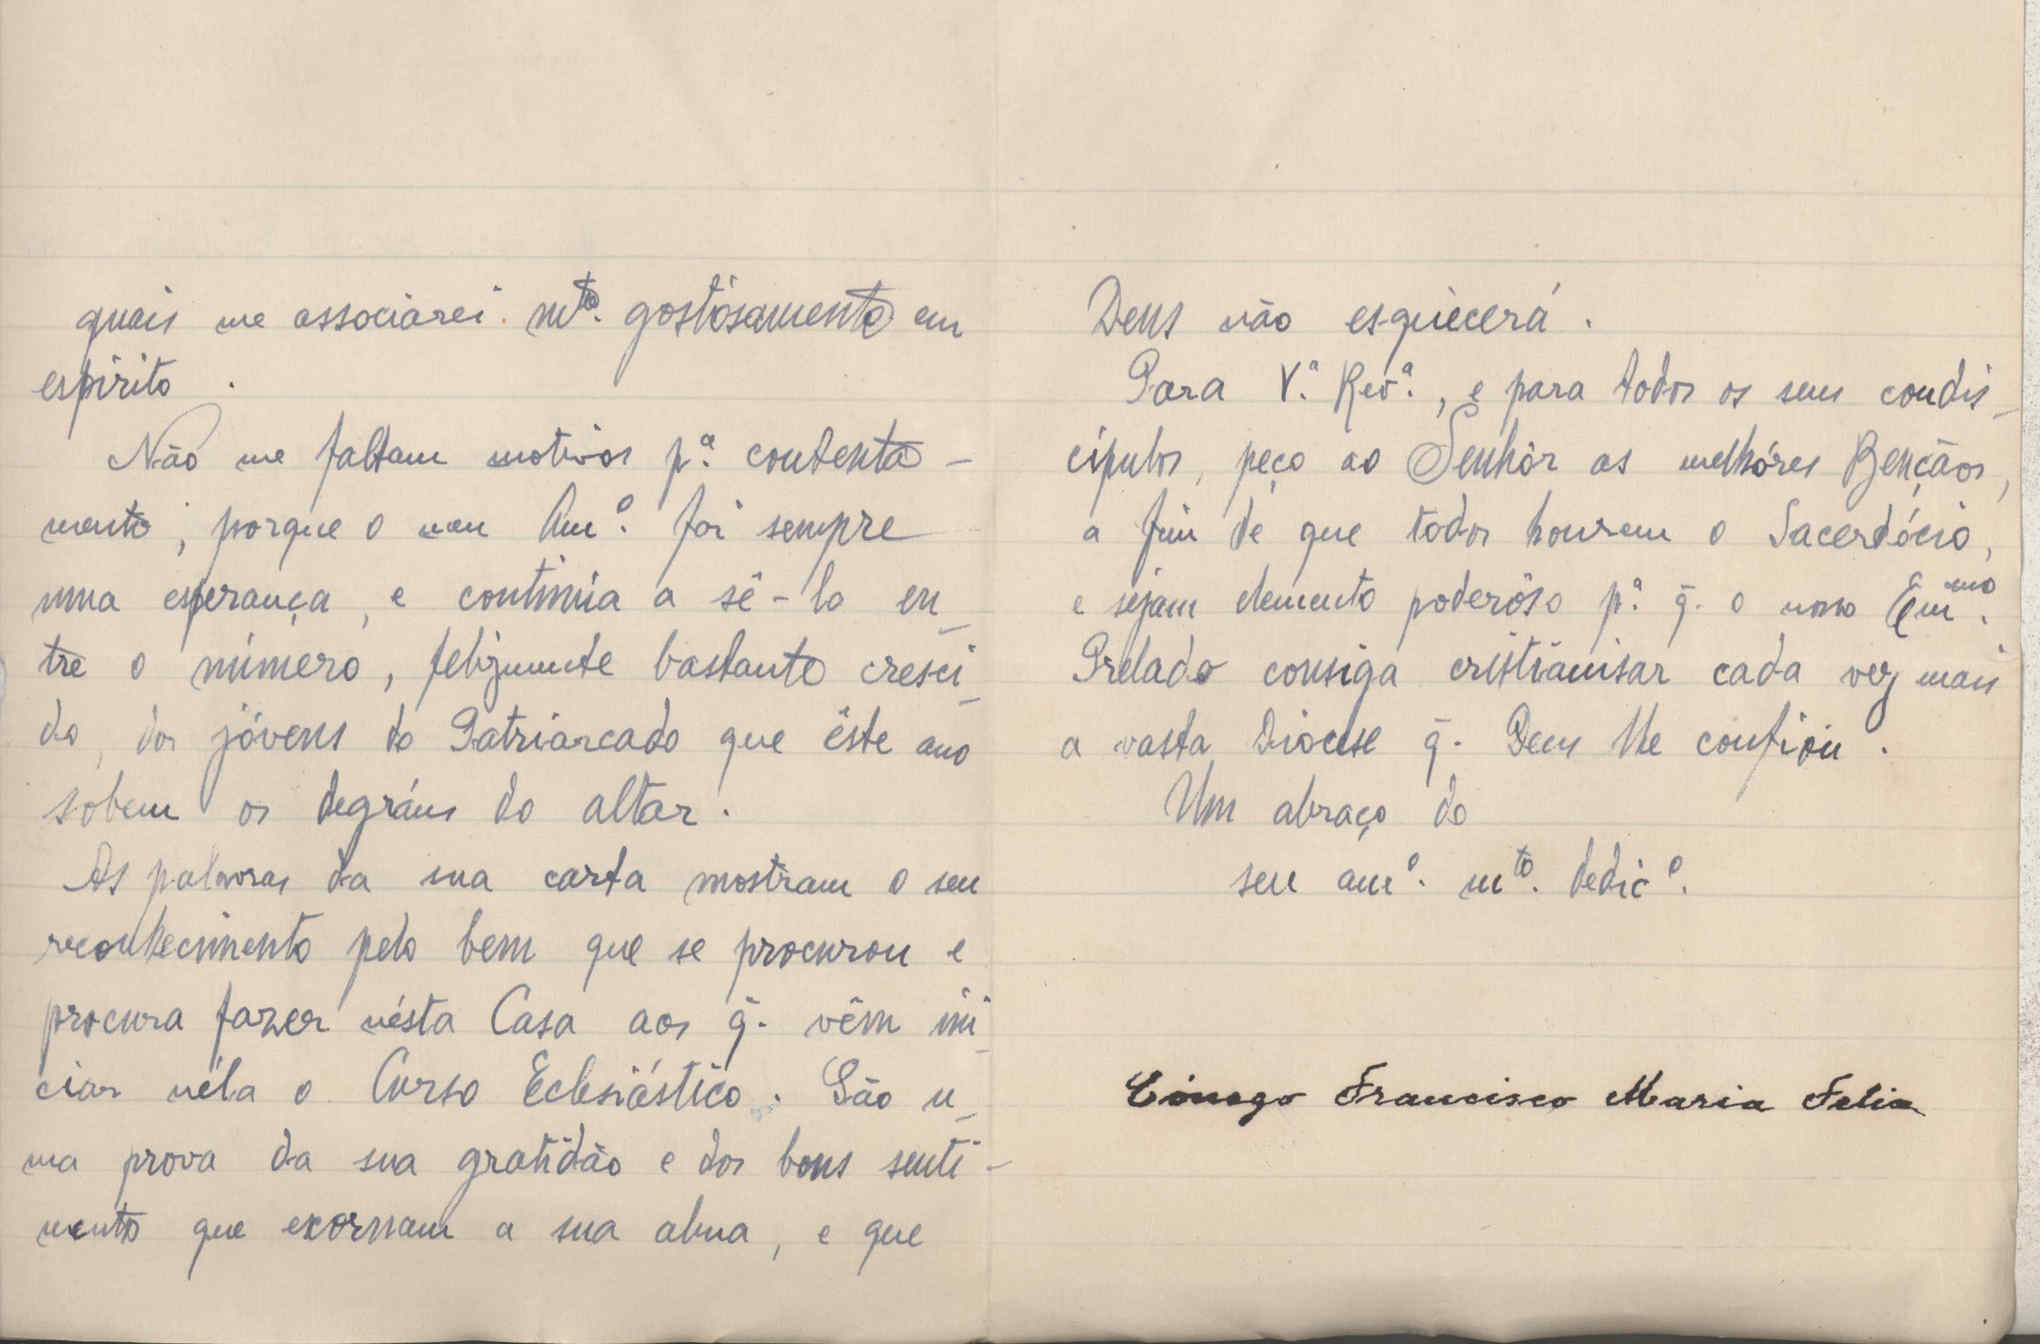 quais me associarei mto. gostósamente em
espirito.
Não me faltam motivos pª. contenta-
mento, porque o meu Amº. foi sempre
uma esperança, e continúa a sê-lo en-
tre o número, felizmente bastante cresci-
do, dos jóvens do Patriarcado que êste ano
sobem os degráus do altar.
As palavras da sua carta mostram o seu
reconhecimento pelo bem que se procurou e
procura fazer nésta Casa aos q̄. vêm ini-
ciar néla o Curso Eclesiástico. São u-
ma prova da sua gratidão e dos bons senti-
mentos que exornam a sua alma, e que
Deus não esquècerá.
Para V.ª Revª., e para todos os seus condis-
cipulos, peço ao Senhôr as melhóres Bençãos,
a fim de que todos honrem o Sacerdócio,
e sejam elemento poderôso pª. q̄. o nosso Emmo.
Prelado consiga cristianisar cada vez mais
a vasta Diocese q̄. Deus lhe confiou.
Um abraço do
seu amº. mto. dedicº.
Cónego Francisco Maria Felix